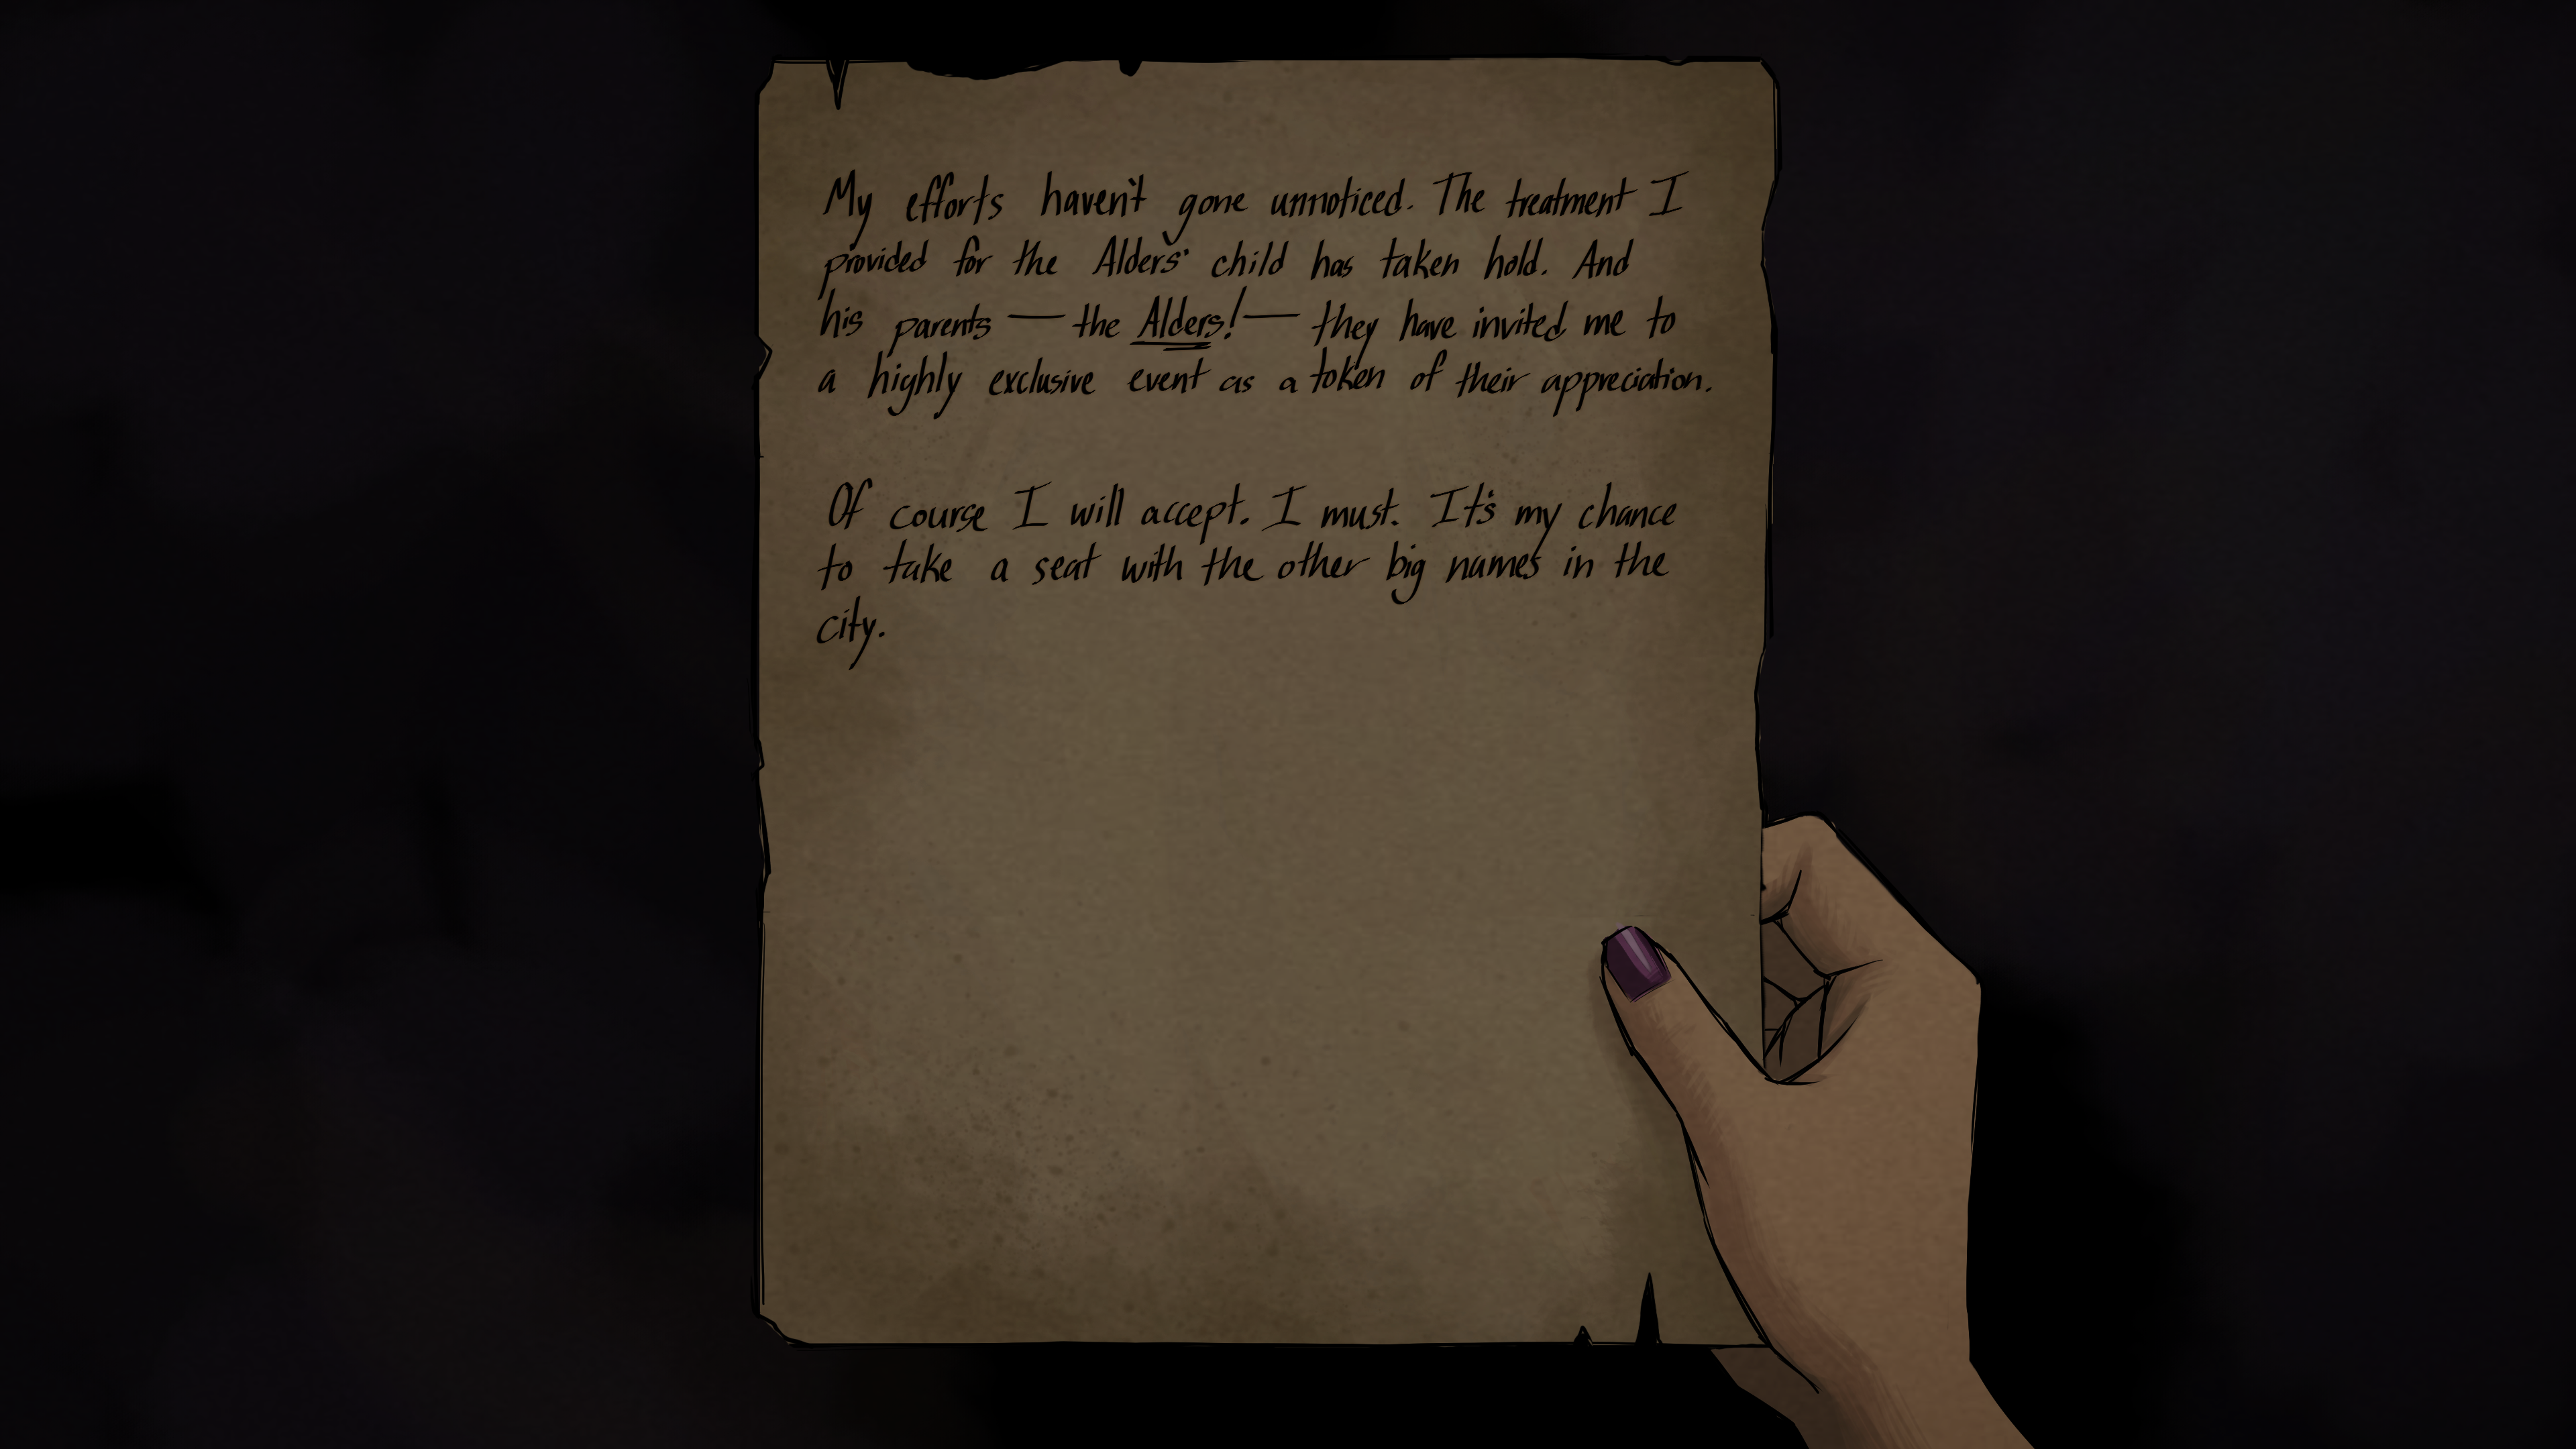 My efforts haven't gone unnoticed. The treatment I
provided for the Alders' child has taken hold. And
his parents — the Alders! — they have invited me to
a highly exclusive event as a token of their appreciation.
Of course I will accept. I must. It's my chance
to take a seat with the other big names in the
city.